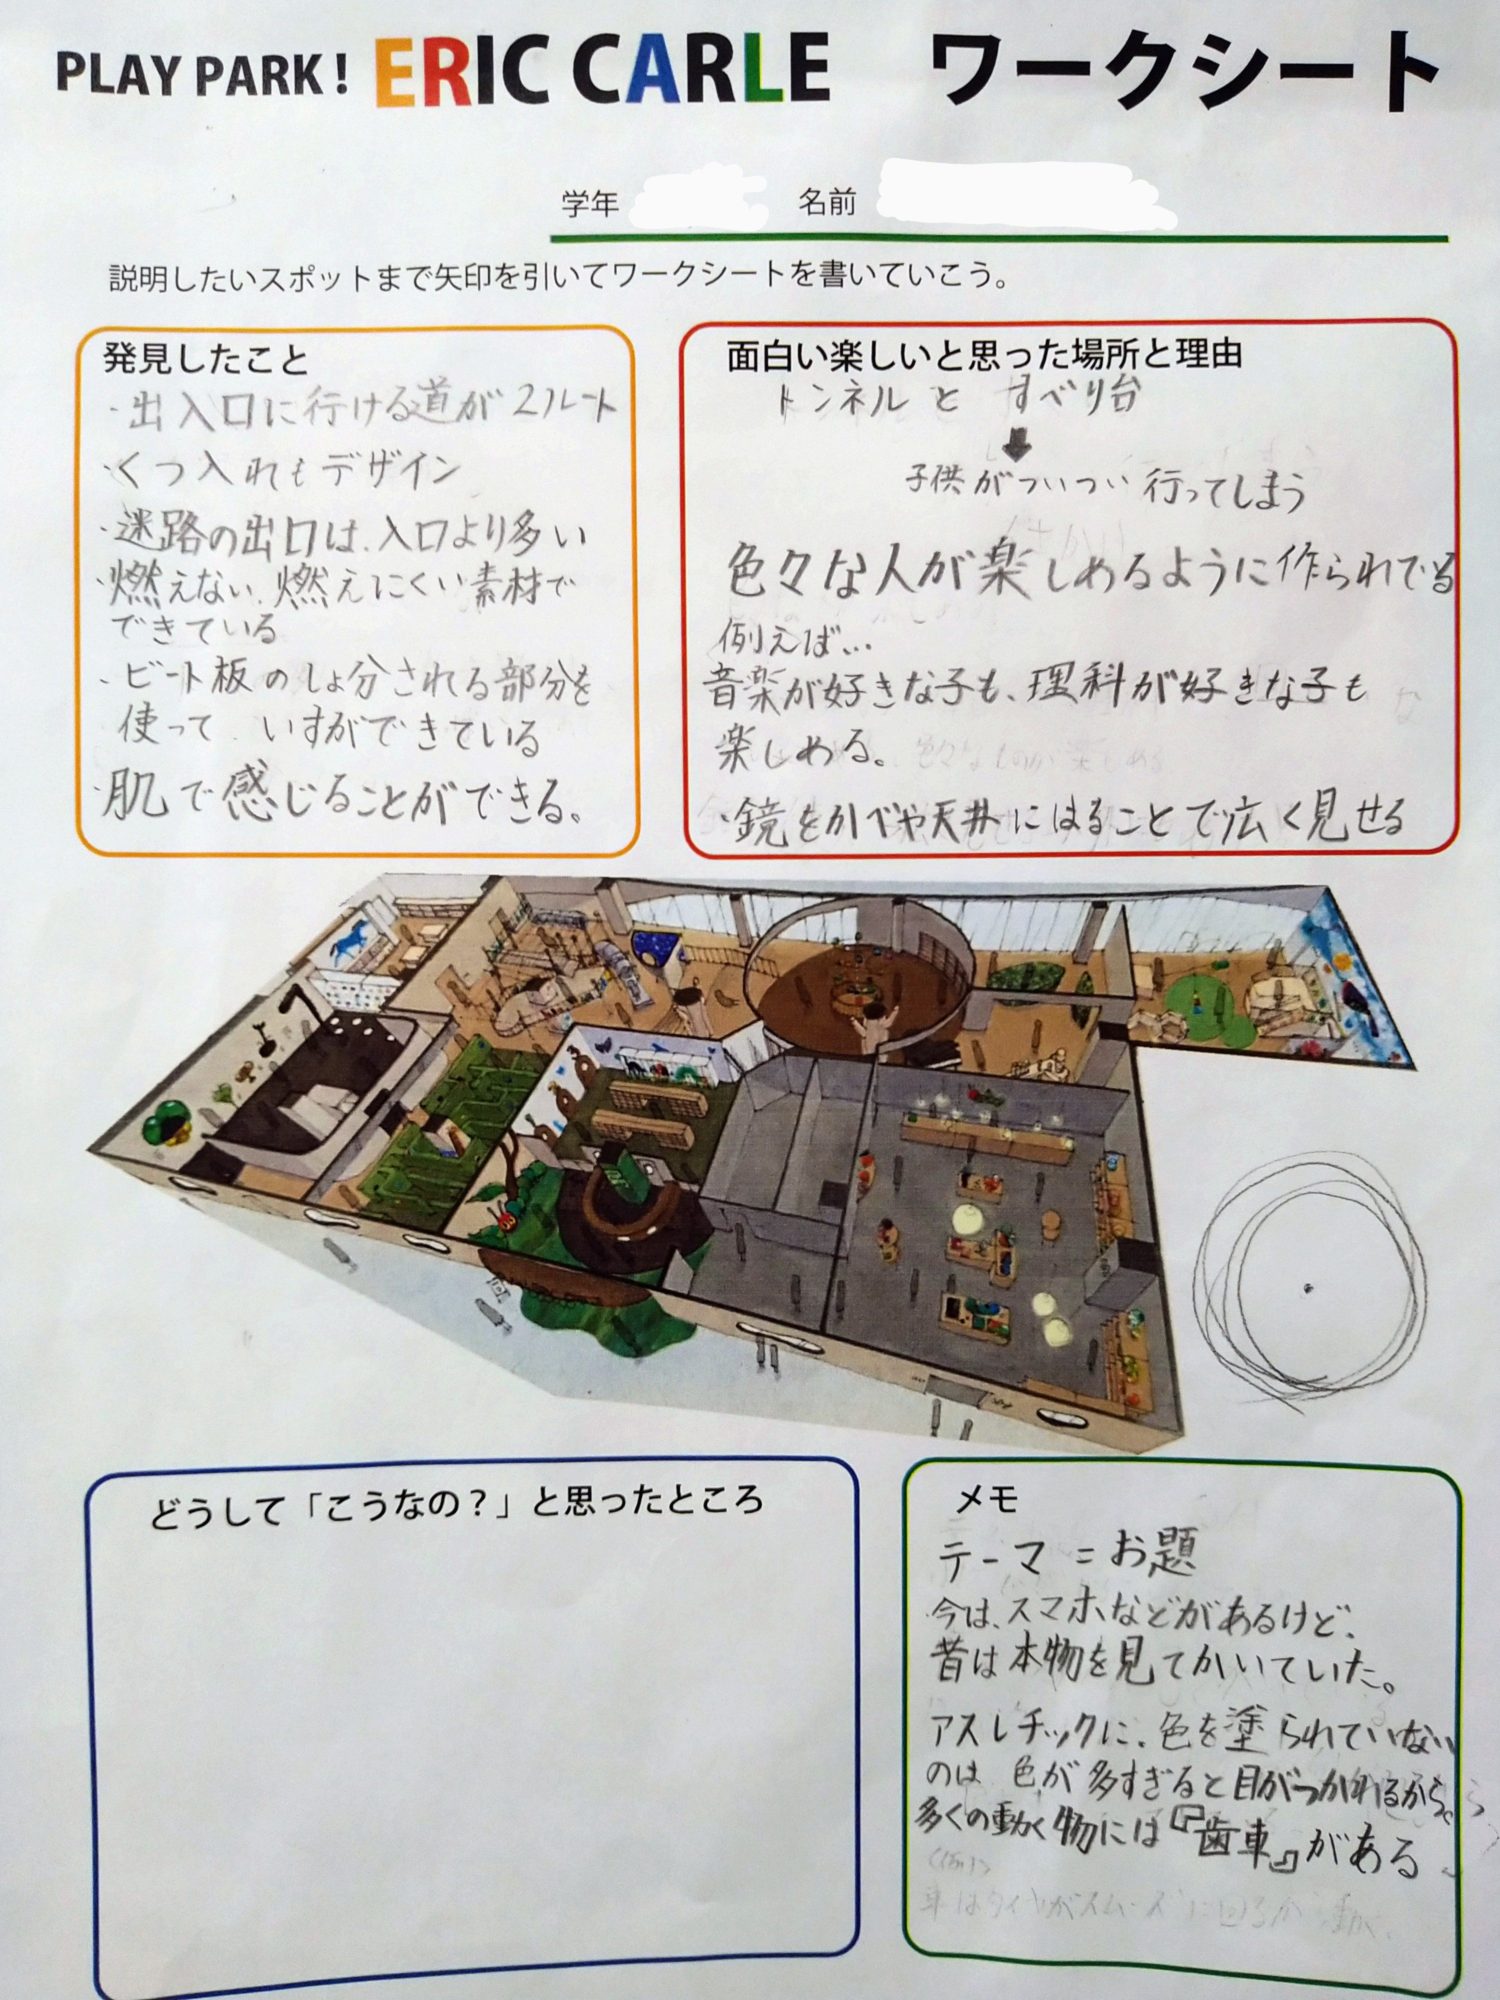 PLAY PARK! ERIC CARLE ワークシート
学年 名前
説明したいスポットまで矢印を引いてワークシートを書いていこう。
発見したこと
・出入口に行ける道が2ルート
・くつ入れもデザイン
・迷路の出口は、入口より多い
・燃えない、燃えにくい素材で
できている
・ビート板のしょ分される部分を
使って、いすができている
・肌で感じることができる。
面白い楽しいと思った場所と理由
トンネルと すべり台
子供がついつい行ってしまう
色々な人が楽しめるように作られてる
例えば…
音楽が好きな子も、理科が好きな子も
楽しめる。
・鏡をかべや天井にはることで広く見せる
どうして「こうなの？」と思ったところ
メモ
テーマ = お題
今は、スマホなどがあるけど、
昔は本物を見てかいていた。
アスレチックに、色を塗られていない
のは 色が多すぎると目がつかれるから。
多くの動く物には『歯車』がある